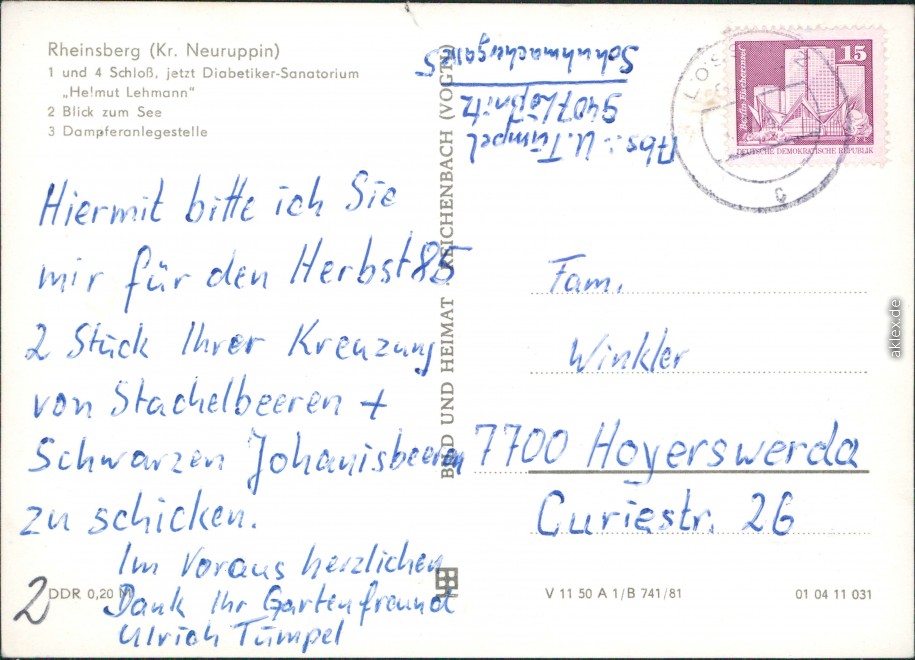 Rheinsberg (Kr. Neuruppin)
1 und 4 Schloß, jetzt Diabetiker-Sanatorium
„Helmut Lehmann"
2 Blick zum See
3 Dampferanlegestelle
Hiermit bitte ich Sie
mir für den Herbst 85
2 Stück Ihrer Kreuzung
von Stachelbeeren +
Schwarzen Johanisbeeren
zu schicken.
Im Voraus herzlichen
Dank Ihr Gartenfreund
Ulrich Tümpel
2
DDR 0,20 M
BILD UND HEIMAT REICHENBACH (VOGTL)
Abs.: U. Tümpel
9407 Lößnitz
Schuhmachergasse 5
15
DEUTSCHE DEMOKRATISCHE REPUBLIK
c
Fam.
Winkler
7700 Hoyerswerda
Curiestr. 26
V 11 50 A 1/B 741/81
01 04 11 031
aklex.de